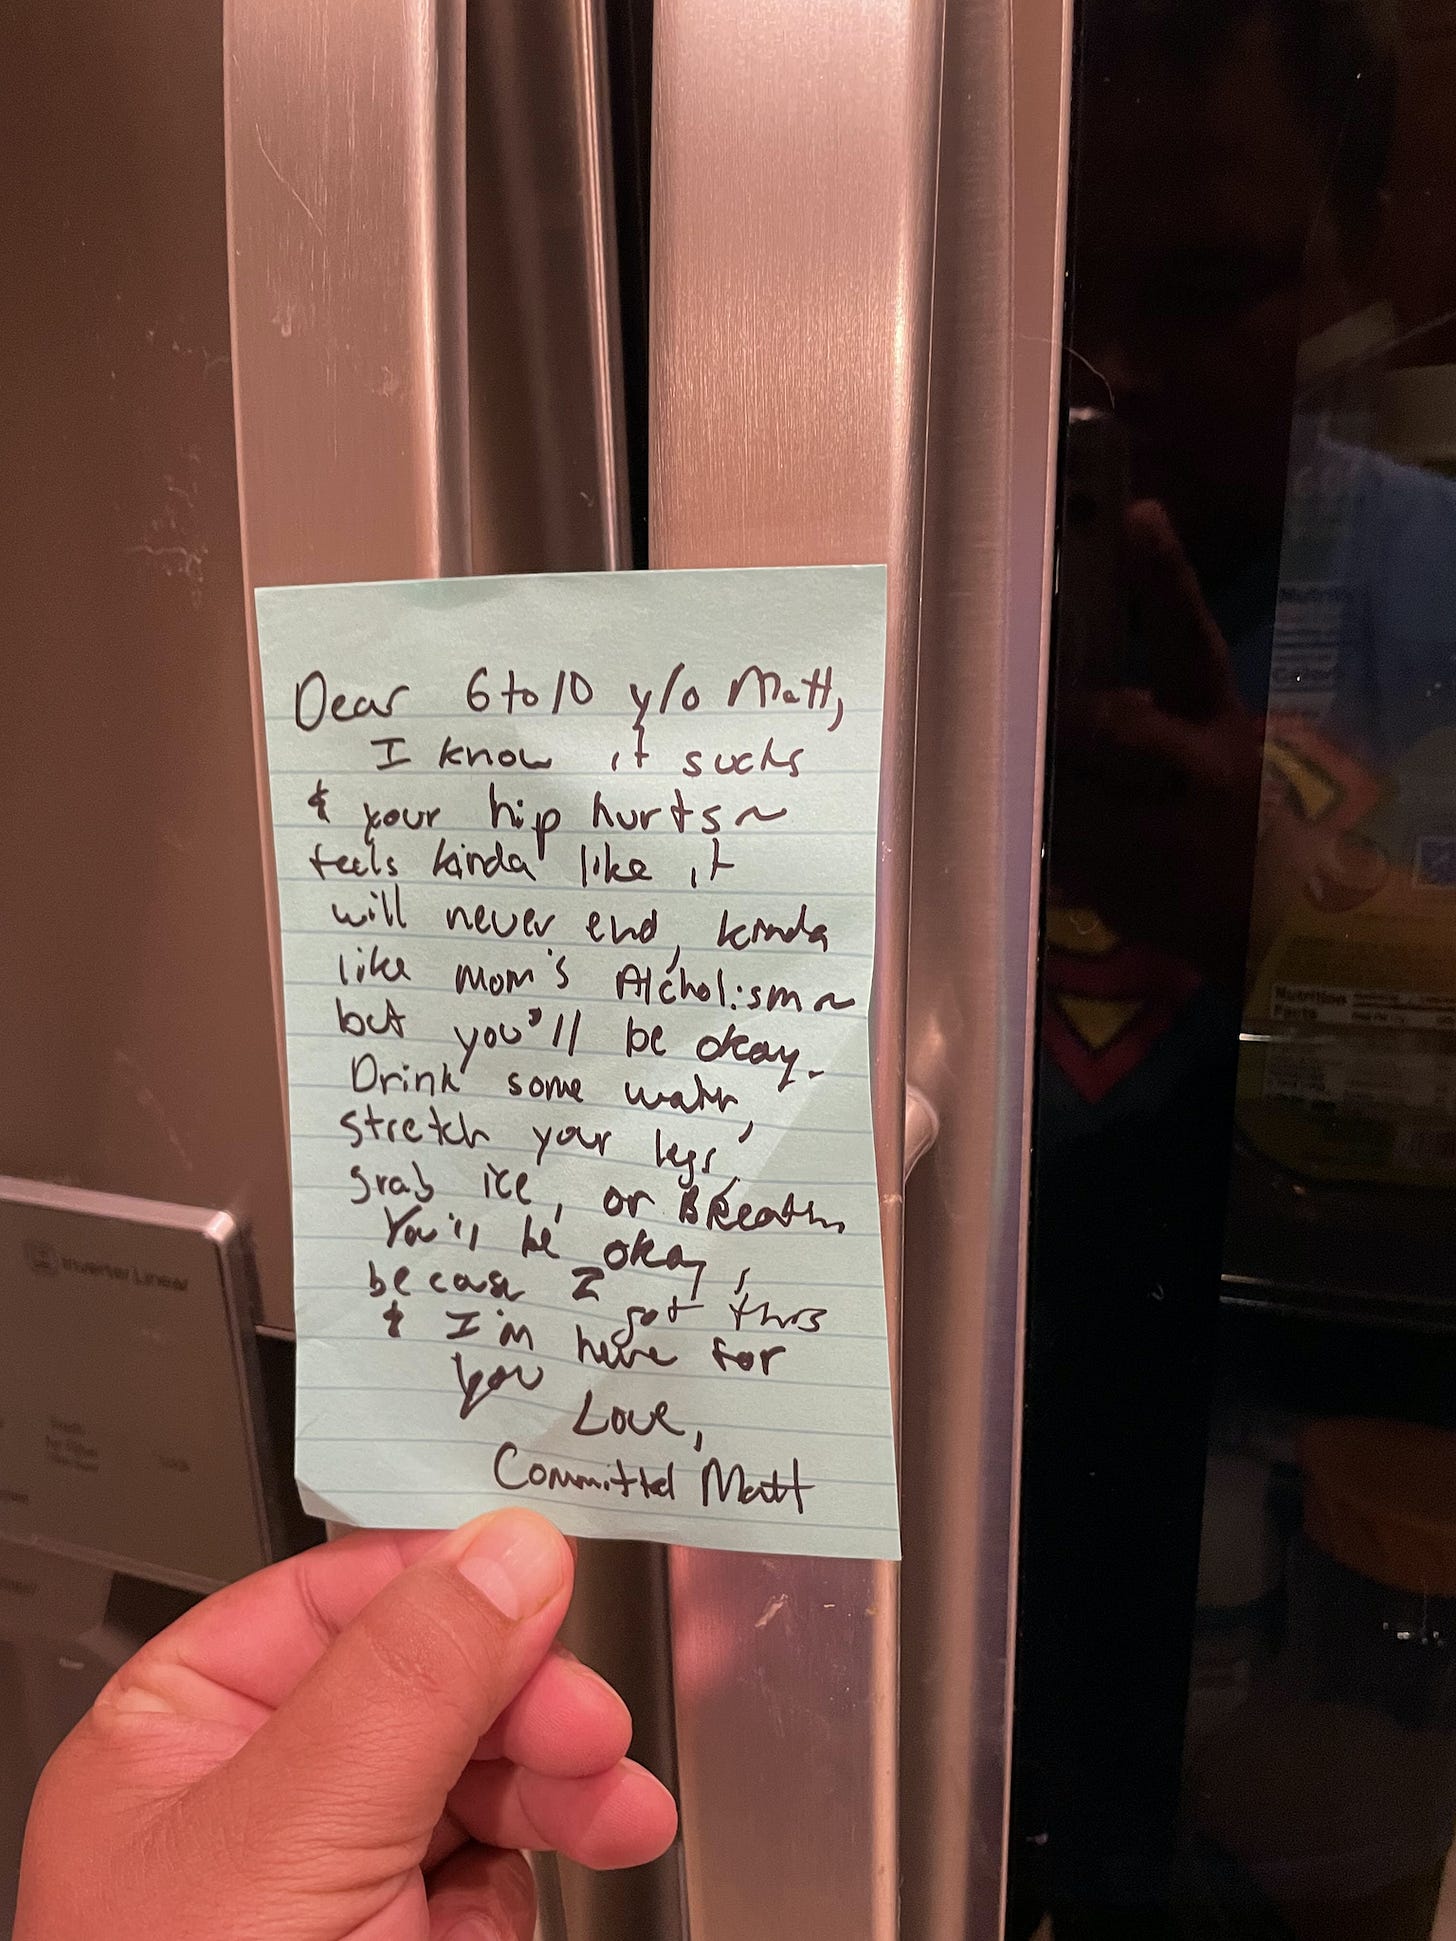 Dear 6 to 10 y/o Matt,
I know it sucks
& your hip hurts~
feels kinda like it
will never end, kinda
like Mom's Alcholism~
but you'll be okay.
Drink some water,
stretch your legs,
grab ice, or BReathe
You'll be okay,
because I got this
& I'm here for
you
Love,
Committed Matt
Inverter Linear
Nutrition
Facts